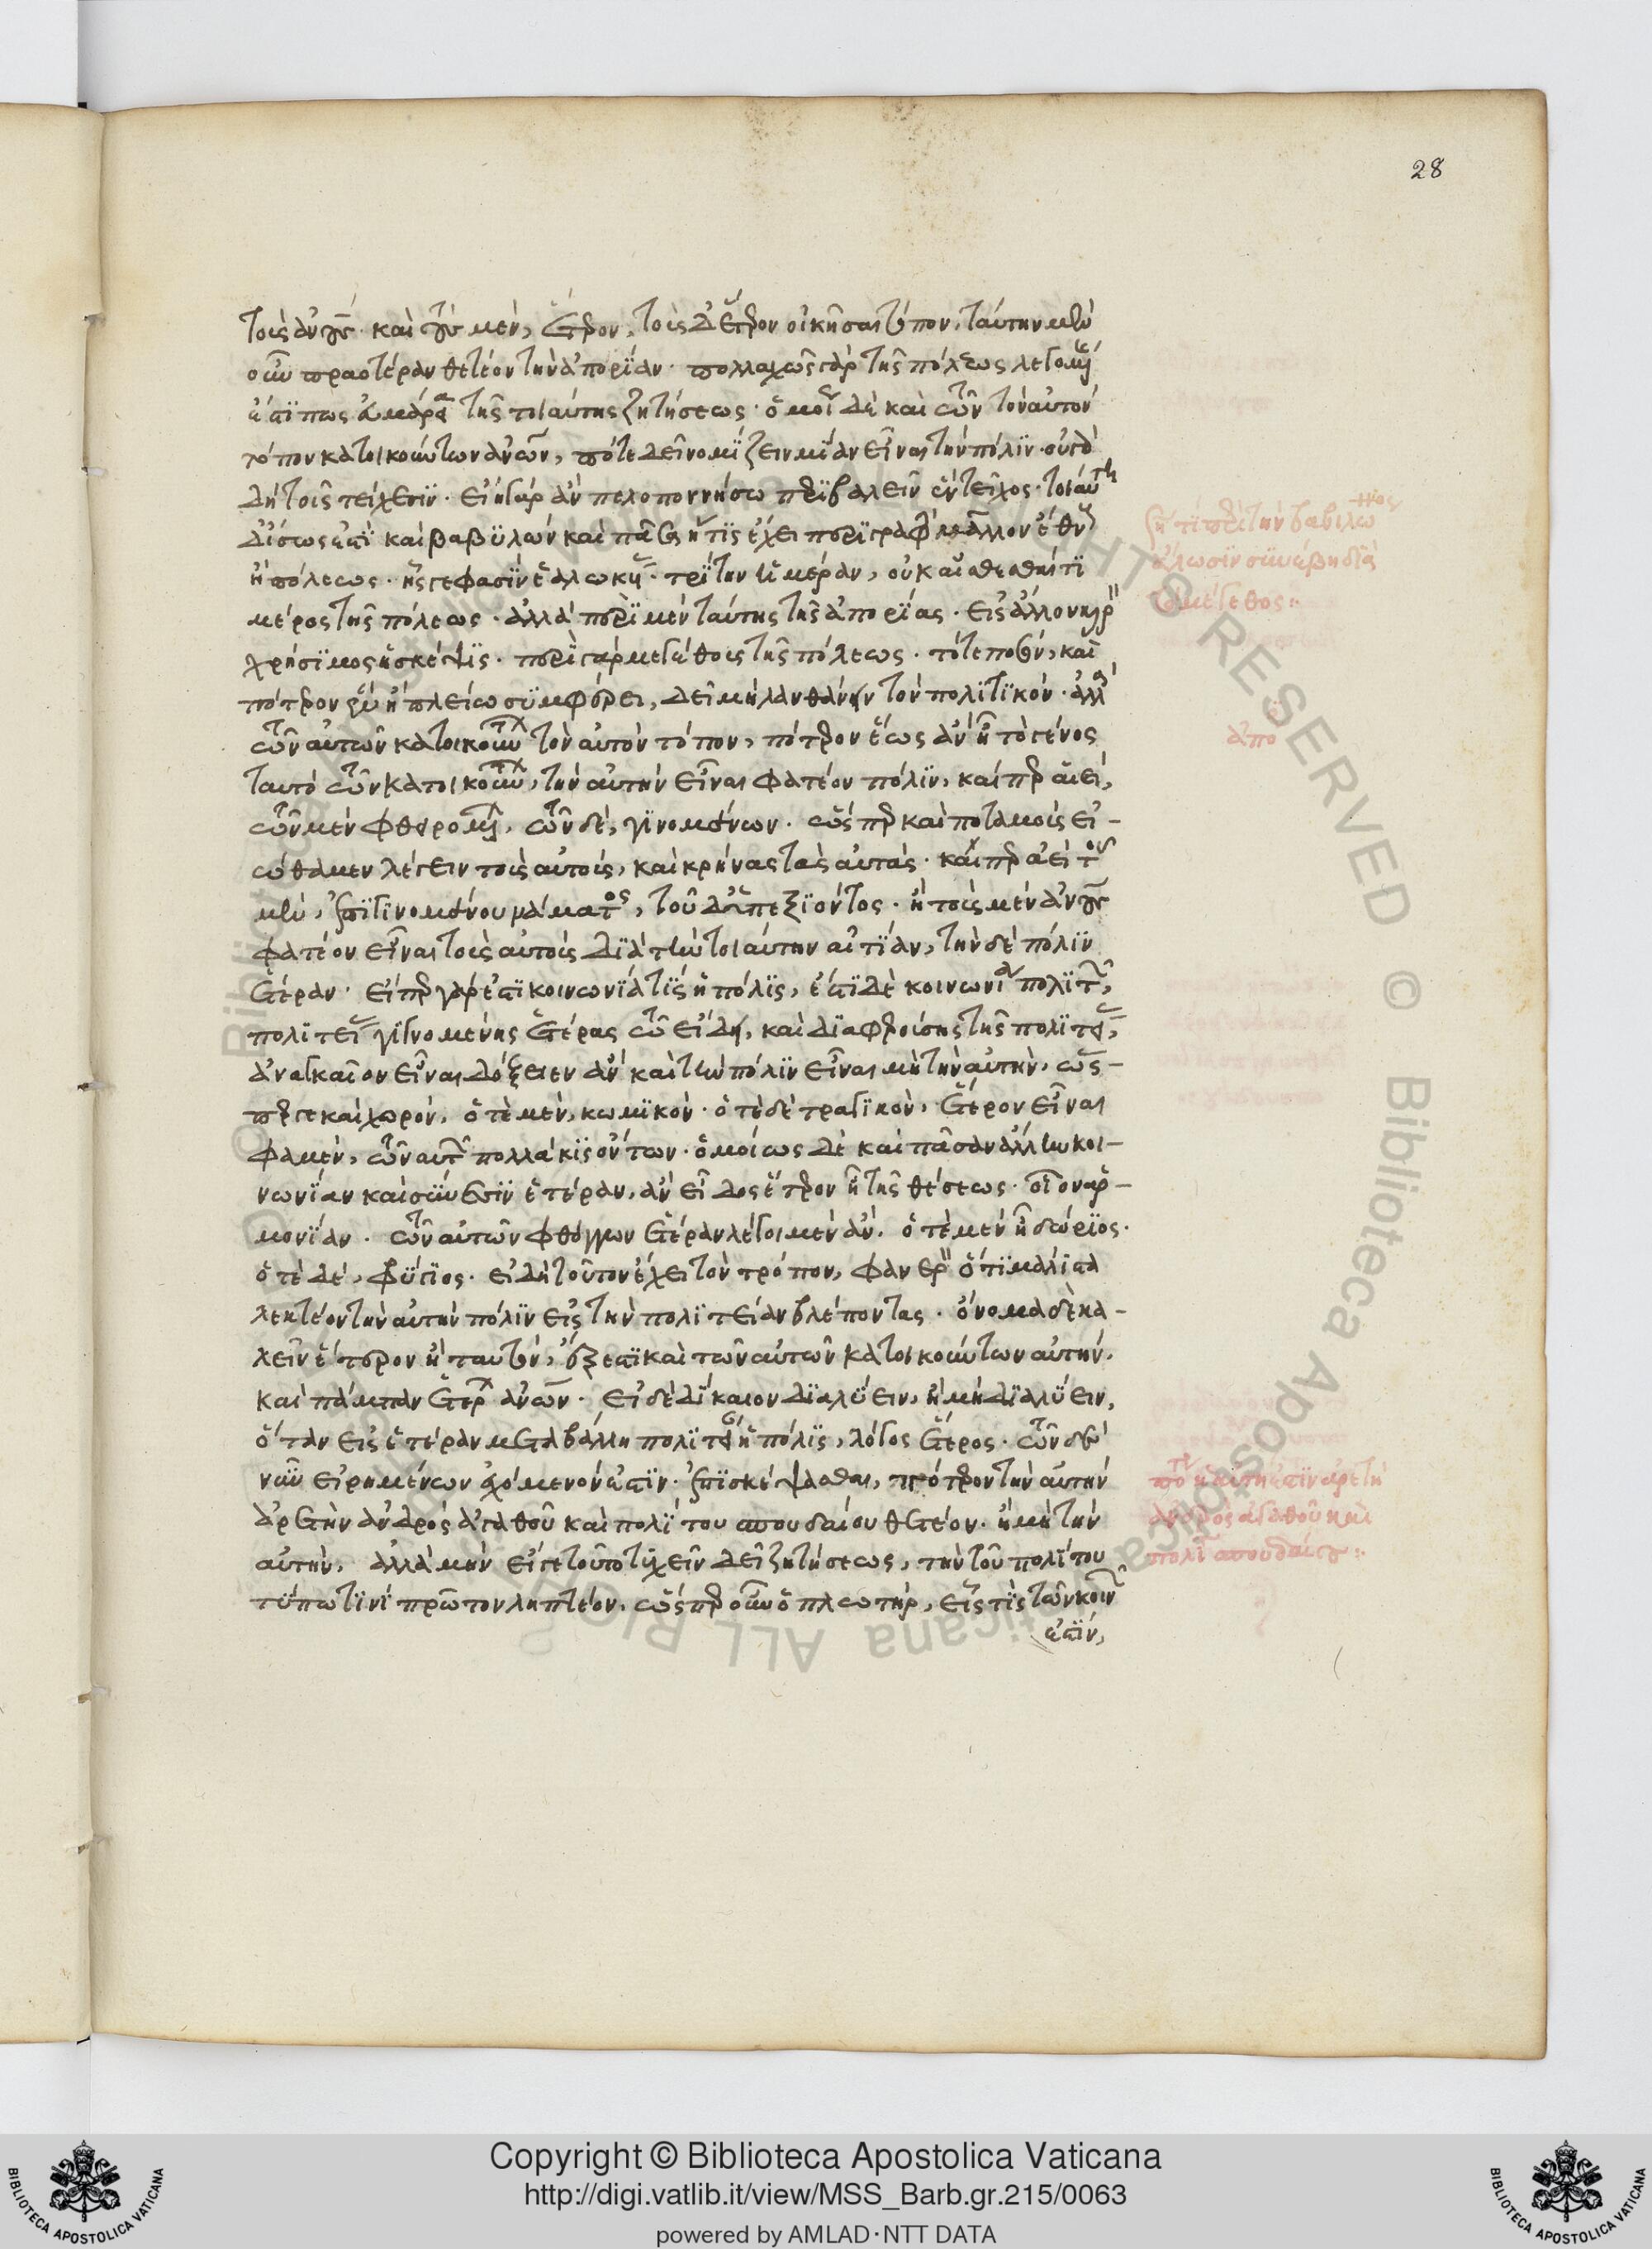 28
τοὺς ἀνους· καὶ τοὺς μὲν, ἕτερον, τοὺς δ' ἕτερον οἰκῆσαι τόπον, ταύτην μὲν
οὖν πραοτέραν θετέον τὴν ἀπορίαν· πολλαχῶς γὰρ τῆς πόλεως λεγομένης
ἐστί πως εὐμάρεια τῆς τοιαύτης ζητήσεως· ὁμοίως δὲ καὶ τῶν τὸν αὐτὸν
τόπον κατοικούντων ἀνων, πότε δεῖ νομίζειν μίαν εἶναι τὴν πόλιν· οὐ γὰρ
δὴ τοῖς τείχεσιν· εἴη γὰρ ἂν πελοποννήσω περιβαλεῖν ἓν τεῖχος· τοιαύτη
δ' ἴσως ἐστὶ καὶ βαβυλὼν καὶ πᾶσα ἥτις ἔχει περιγραφὴν μᾶλλον ἔθνους
ἢ πόλεως· ἧς γέ φασιν ἑαλωκυίας τρίτην ἡμέραν, οὐκ αἰσθέσθαι τὶ
μέρος τῆς πόλεως· ἀλλὰ περὶ μὲν ταύτης τῆς ἀπορίας· εἰς ἄλλον καιρὸν
χρήσιμος ἡ σκέψις· περὶ γὰρ μεγέθους τῆς πόλεως· τό τε πόσον, καὶ
πότερον ἓν ἢ πλείω συμφέρει, δεῖ μὴ λανθάνειν τὸν πολιτικόν· ἀλλὰ
τῶν αὐτῶν κατοικούντων τὸν αὐτὸν τόπον, πότερον ἕως ἂν ἦ τὸ γένος
ταυτὸ τῶν κατοικούντων, τὴν αὐτὴν εἶναι φατέον πόλιν, καίπερ αἰεὶ,
τῶν μὲν φθειρομένων, τῶν δὲ, γινομένων· ὥσπερ καὶ ποταμοὺς εἰ-
ώθαμεν λέγειν τοὺς αὐτοὺς, καὶ κρήνας τὰς αὐτάς· καίπερ ἀεὶ τοῦ
μὲν, ἐπιγινομένου νάματος, τοῦ δ' ὑπεξιόντος· ἢ τοὺς μὲν ἀνους
φατέον εἶναι τοὺς αὐτοὺς διὰ τὴν τοιαύτην αἰτίαν, τὴν δὲ πόλιν
ἑτέραν· εἴπερ γάρ ἐστι κοινωνία τὶς ἡ πόλις, ἔστι δὲ κοινωνία πολιτῶν,
πολιτείας γιγνομένης ἑτέρας τῶ εἴδει, καὶ διαφερούσης τῆς πολιτείας,
ἀναγκαῖον εἶναι δόξειεν ἂν καὶ τὴν πόλιν εἶναι μὴ τὴν αὐτὴν, ὥς-
περ γε καὶ χορὸν, ὁτὲ μὲν, κωμικὸν· ὁτὲ δὲ τραγικὸν, ἕτερον εἶναι
φαμὲν, τῶν αὐτῶν πολλάκις ὄντων· ὁμοίως δὲ καὶ πᾶσαν ἄλλην κοι-
νωνίαν καὶ σύνθεσιν ἑτέραν, ἂν εἶδος ἕτερον ἦ τῆς θέσεως· οἷον ἁρ-
μονίαν· τῶν αὐτῶν φθόγγων ἑτέραν λέγοιμεν ἂν. ὁτὲ μὲν ἦ δώριος·
ὁτὲ δὲ, φρύγιος· εἰ δὴ τοῦτον ἔχει τὸν τρόπον, φανερὸν ὅτι μάλιστα
λεκτέον τὴν αὐτὴν πόλιν εἰς τὴν πολιτείαν βλέποντας· ὄνομα δὲ κα-
λεῖν ἕτερον ἢ ταυτὸν, ἔξεστι καὶ τῶν αὐτῶν κατοικούντων αὐτὴν,
καὶ πάμπαν ἑτέρων ἀνων· εἰ δὲ δίκαιον διαλύειν, ἢ μὴ διαλύειν,
ὅταν εἰς ἑτέραν μεταβάλλη πολιτείαν ἡ πόλις, λόγος ἕτερος· τῶν δὲ
νῦν εἰρημένων ἐχόμενόν ἐστιν· ἐπισκέψασθαι, πότερον τὴν αὐτὴν
ἀρετὴν ἀνδρὸς ἀγαθοῦ καὶ πολίτου σπουδαίου θετέον· ἢ μὴ τὴν
αὐτὴν, ἀλλὰ μὴν εἴγε τοῦτο τυχεῖν δεῖ ζητήσεως, τὴν τοῦ πολίτου
τύπω τινὶ πρῶτον ληπτέον, ὥσπερ οὖν ὁ πλωτὴρ, εἷς τὶς τῶν κοινωνῶν
ἐστίν,
τί περὶ τὴν βαβυλῶνος
ἅλωσιν συνέβη διὰ
τὸ μέγεθος:
ἀπο
ἡ αὐτή ἐστιν ἀρετὴ
ἀνδρὸς ἀγαθοῦ καὶ
πολίτου σπουδαίου:
Copyright © Biblioteca Apostolica Vaticana
http://digi.vatlib.it/view/MSS_Barb.gr.215/0063
powered by AMLAD·NTT DATA